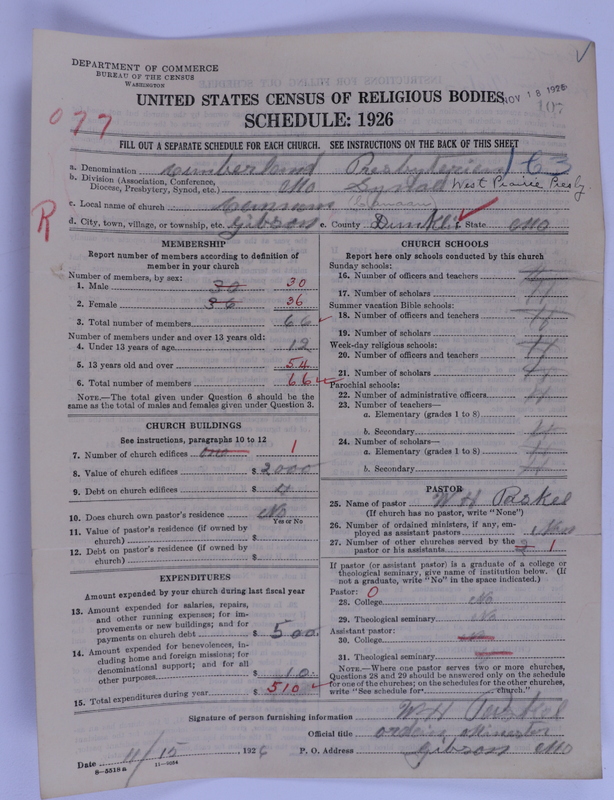 DEPARTMENT OF COMMERCE
BUREAU OF THE CENSUS
WASHINGTON
NOV 18 1926
107
UNITED STATES CENSUS OF RELIGIOUS BODIES
SCHEDULE: 1926
077
FILL OUT A SEPARATE SCHEDULE FOR EACH CHURCH. SEE INSTRUCTIONS ON THE BACK OF THIS SHEET
a. Denomination Cumberland Presbyterian 163
b. Division (Association, Conference, Diocese, Presbytery, Synod, etc.) Mo Synod West Prairie Presby
c. Local name of church (Canaan)
R
d. City, town, village, or township, etc. Gibson e. County Dunklin State Mo
MEMBERSHIP
Report number of members according to definition of
member in your church
Number of members, by sex:
1. Male 30 30
2. Female 36 36
3. Total number of members 66
Number of members under and over 13 years old:
4. Under 13 years of age 12
5. 13 years old and over 54
6. Total number of members 66
NOTE.—The total given under Question 6 should be
the same as the total of males and females given under Question 3.
CHURCH BUILDINGS
See instructions, paragraphs 10 to 12
7. Number of church edifices one 1
8. Value of church edifices $ 2000
9. Debt on church edifices $
10. Does church own pastor's residence? No
Yes or No
11. Value of pastor's residence (if owned by
church) $
12. Debt on pastor's residence (if owned by
church) $
EXPENDITURES
Amount expended by your church during last fiscal year
13. Amount expended for salaries, repairs,
and other running expenses; for im-
provements or new buildings; and for
payments on church debt $ 500
14. Amount expended for benevolences, in-
cluding home and foreign missions; for
denominational support; and for all
other purposes $ 10
15. Total expenditures during year $ 510
CHURCH SCHOOLS
Report here only schools conducted by this church
Sunday schools:
16. Number of officers and teachers
17. Number of scholars
Summer vacation Bible schools:
18. Number of officers and teachers
19. Number of scholars
Week-day religious schools:
20. Number of officers and teachers
21. Number of scholars
Parochial schools:
22. Number of administrative officers
23. Number of teachers—
a. Elementary (grades 1 to 8)
b. Secondary
24. Number of scholars—
a. Elementary (grades 1 to 8)
b. Secondary
PASTOR
25. Name of pastor W H
(If church has no pastor, write "None")
26. Number of ordained ministers, if any, em-
ployed as assistant pastors None
27. Number of other churches served by the
pastor or his assistants 2 1
If pastor (or assistant pastor) is a graduate of a college or
theological seminary, give name of institution below. (If
not a graduate, write "No" in the space indicated.)
Pastor: 0
28. College No
29. Theological seminary No
Assistant pastor:
30. College No
31. Theological seminary
NOTE.—Where one pastor serves two or more churches,
Questions 28 and 29 should be answered only on the schedule
for one of the churches; on the schedules for the other churches,
write "See schedule for church."
Signature of person furnishing information W H
Official title Minister
Date 11/15, 1926 P. O. Address Gibson Mo
8—5518a 11—9084